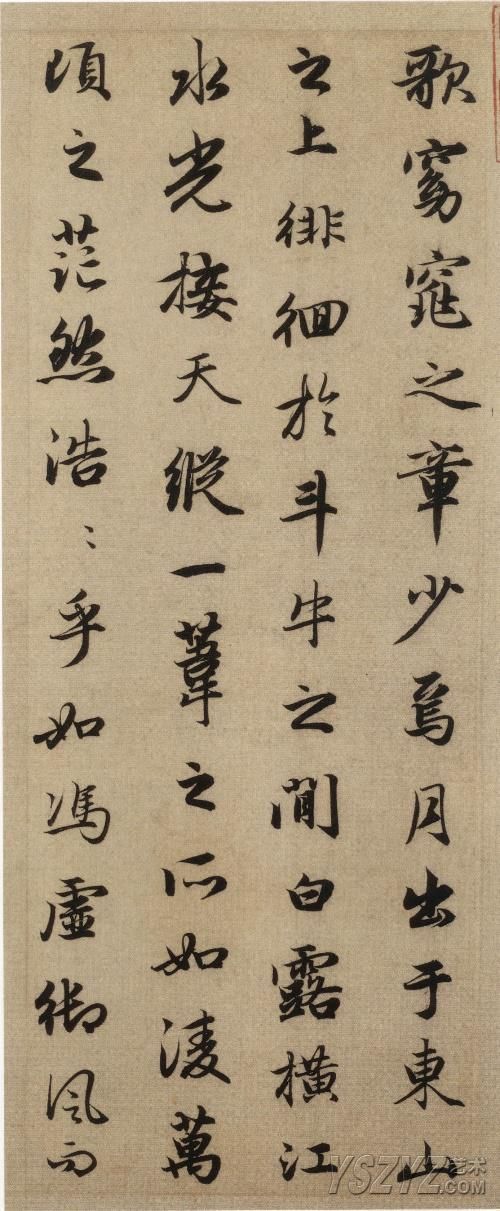 歌窈窕之章少焉月出于東山
之上徘徊於斗牛之間白露橫江
水光接天縱一葦之所如淩萬
頃之茫然浩〻乎如馮虛御風而
YSZYZ艺术